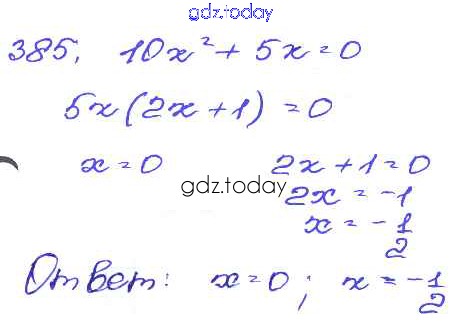 gdz.today
385. 10x² + 5x = 0
5x(2x + 1) = 0
x = 0 2x + 1 = 0
gdz.today
2x = -1
x = -1/2
Ответ: x = 0; x = -1/2